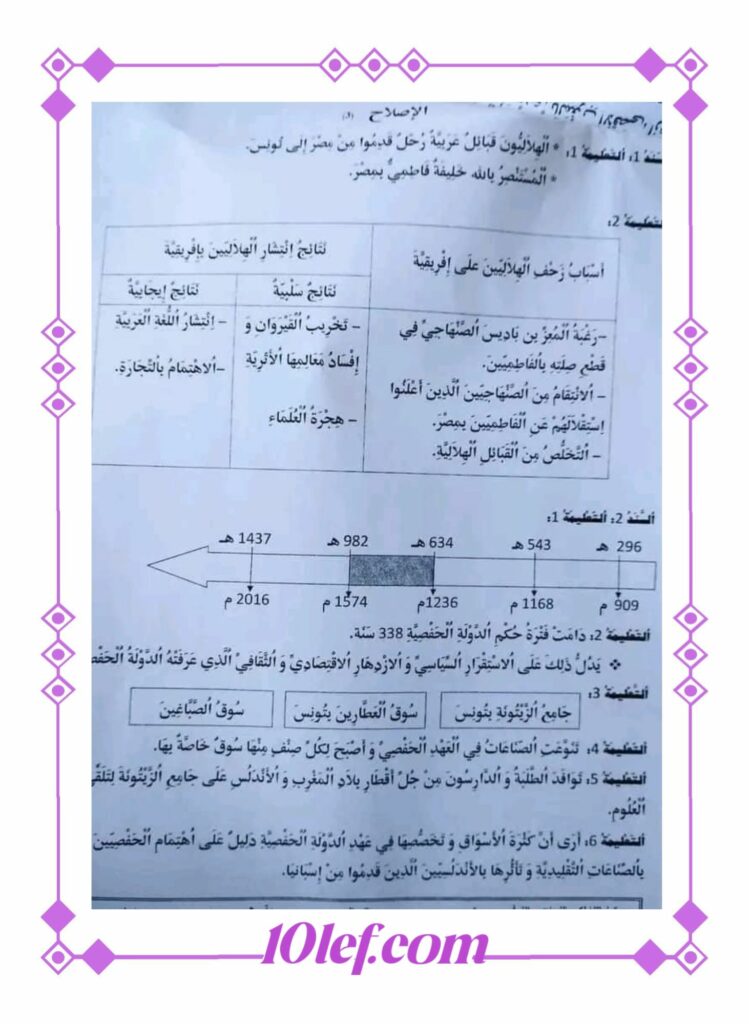 الإصلاح
السّند 1: التعليمة 1: * الْهِلَالِيُّونَ قَبَائِلُ عَرَبِيَّةٌ رُحَّلٌ قَدِمُوا مِنْ مِصْرَ إِلَى تُونِسَ.
* الْمُسْتَنْصِرُ بِالله خَلِيفَةٌ فَاطِمِيٌّ بِمِصْرَ.
التعليمة 2:
أَسْبَابُ زَحْفِ الْهِلَالِيِّينَ عَلَى إِفْرِيقِيَّةَ
نَتَائِجُ اِنْتِشَارِ الْهِلَالِيِّينَ بِإِفْرِيقِيَّةَ
نَتَائِجٌ سَلْبِيَّةٌ
نَتَائِجٌ إِيجَابِيَّةٌ
-رَغْبَةُ الْمُعِزِّ بن بَادِيسَ الصِّنْهَاجِيِّ فِي
قَطْعِ صِلَتِهِ بِالفَاطِمِيِّينَ.
- الانْتِقَامُ مِنَ الصِّنْهَاجِيِّينَ الَّذِينَ أَعْلَنُوا
اِسْتِقْلَالَهُمْ عَنِ الْفَاطِمِيِّينَ بِمِصْرَ.
- التَّخَلُّصُ مِنَ الْقَبَائِلِ الْهِلَالِيَّةِ.
- تَخْرِيبُ الْقَيْرَوَانِ وَ
إِفْسَادُ مَعَالِمِهَا الْأَثَرِيَّةِ
- هِجْرَةُ الْعُلَمَاءِ
- اِنْتِشَارُ اللُّغَةِ الْعَرَبِيَّةِ
-الاهْتِمَامُ بِالتِّجَارَةِ.
السَّنَدُ 2: التعليمة 1:
296 هـ 543 هـ 634 هـ 982 هـ 1437 هـ
909 م 1168 م 1236م 1574 م 2016 م
التعليمة 2: دَامَتْ فَتْرَةُ حُكْمِ الدَّوْلَةِ الْحَفْصِيَّةِ 338 سَنَة.
❖ يَدُلُّ ذَلِكَ عَلَى الاسْتِقْرَارِ السِّيَاسِيِّ وَ الازْدِهَارِ الاقْتِصَادِيِّ وَ الثَّقَافِيِّ الَّذِي عَرَفَتْهُ الدَّوْلَةُ
التعليمة 3:
جَامِعُ الزَّيْتُونَةِ بِتُونسَ
سُوقُ الْعَطَّارِينَ بِتُونِسَ
سُوقُ الصَّبَّاغِينَ
التعليمة 4: تَنَوَّعَتِ الصِّنَاعَاتُ فِي الْعَهْدِ الْحَفْصِيِّ وَ أَصْبَحَ لِكُلِّ صِنْفٍ مِنْهَا سُوقٌ خَاصَّةٌ بِهَا.
التعليمة 5: تَوَافَدَ الطَّلَبَةُ وَ الدَّارِسُونَ مِنْ جُلِّ أَقْطَارِ بِلَادِ الْمَغْرِبِ وَ الأَنْدَلُسِ عَلَى جَامِعِ الزَّيْتُونَةِ
الْعُلُومِ.
التعليمة 6: أَرَى أَنَّ كَثْرَةَ الْأَسْوَاقِ وَ تَخَصُّصَهَا فِي عَهْدِ الدَّوْلَةِ الْحَفْصِيَّةِ دَلِيلٌ عَلَى اهْتِمَامِ الْحَفْصِيِّينَ
بِالصِّنَاعَاتِ التَّقْلِيدِيَّةِ وَ تَأَثُّرِهَا بِالأَنْدَلُسِيِّينَ الَّذِينَ قَدِمُوا مِنْ إِسْبَانِيَا.
10lef.com